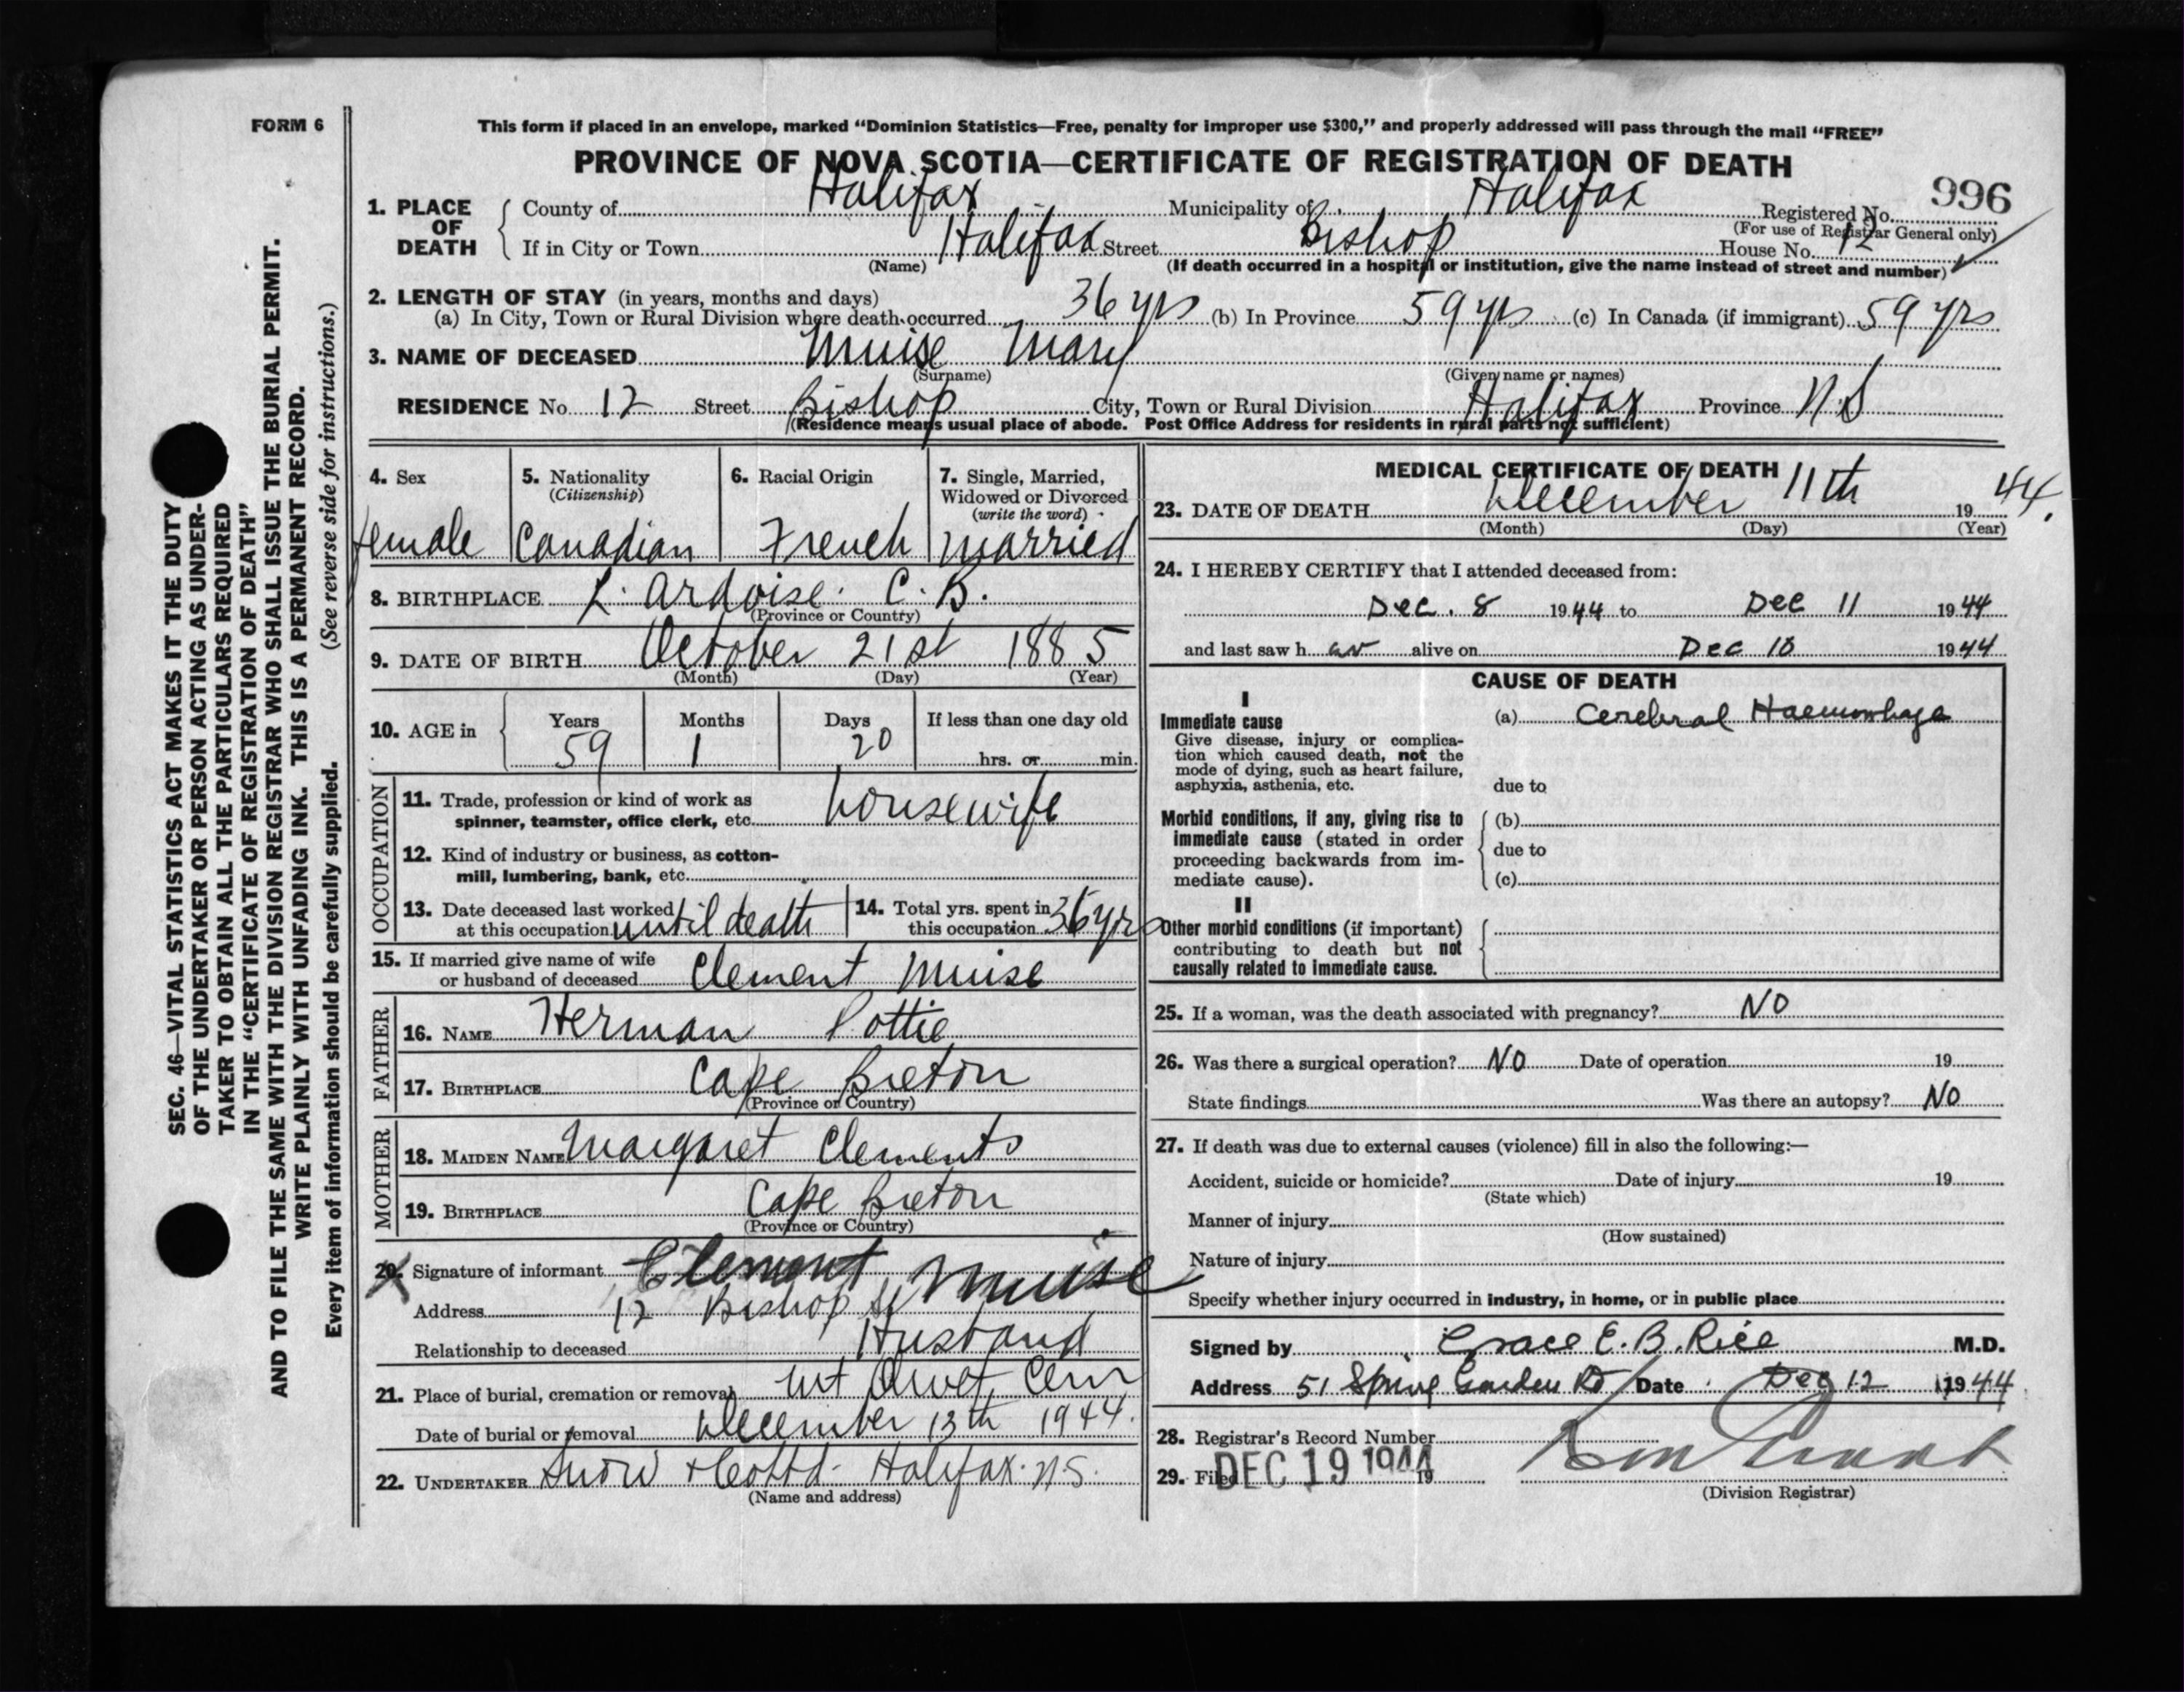 FORM 6
This form if placed in an envelope, marked “Dominion Statistics—Free, penalty for improper use $300,” and properly addressed will pass through the mail “FREE”
PROVINCE OF NOVA SCOTIA—CERTIFICATE OF REGISTRATION OF DEATH
996
1. PLACE OF DEATH County of Halifax Municipality of Halifax Registered No.
(For use of Registrar General only)
If in City or Town Halifax Street Bishop House No. 12
(Name) (If death occurred in a hospital or institution, give the name instead of street and number)
2. LENGTH OF STAY (in years, months and days)
(a) In City, Town or Rural Division where death occurred 36 yrs (b) In Province 59 yrs (c) In Canada (if immigrant) 59 yrs
3. NAME OF DECEASED Muise Mary
(Surname) (Given name or names)
RESIDENCE No. 12 Street Bishop City, Town or Rural Division Halifax Province N.S
(Residence means usual place of abode. Post Office Address for residents in rural parts not sufficient)
4. Sex
female
5. Nationality
(Citizenship)
Canadian
6. Racial Origin
French
7. Single, Married,
Widowed or Divorced
(write the word)
married
8. BIRTHPLACE L. Ardoise. C. B.
(Province or Country)
9. DATE OF BIRTH October 21st 1885
(Month) (Day) (Year)
10. AGE in Years Months Days If less than one day old
59 1 20 hrs. or min.
OCCUPATION
11. Trade, profession or kind of work as
spinner, teamster, office clerk, etc. housewife
12. Kind of industry or business, as cotton-
mill, lumbering, bank, etc.
13. Date deceased last worked
at this occupation until death
14. Total yrs. spent in
this occupation 36 yrs
15. If married give name of wife
or husband of deceased Clement Muise
FATHER
16. NAME Herman Pottie
17. BIRTHPLACE Cape Breton
(Province or Country)
MOTHER
18. MAIDEN NAME Margaret Clements
19. BIRTHPLACE Cape Breton
(Province or Country)
20. Signature of informant Clement Muise
Address 12 Bishop St
Relationship to deceased Husband
21. Place of burial, cremation or removal Mt Olivet Cem
Date of burial or removal December 13th 1944.
22. UNDERTAKER Snow & Co Ltd. Halifax. N.S.
(Name and address)
MEDICAL CERTIFICATE OF DEATH
23. DATE OF DEATH December 11th 19 44.
(Month) (Day) (Year)
24. I HEREBY CERTIFY that I attended deceased from:
Dec. 8 1944 to Dec 11 1944
and last saw h er alive on Dec 10 1944
CAUSE OF DEATH
I
Immediate cause
Give disease, injury or complica-
tion which caused death, not the
mode of dying, such as heart failure,
asphyxia, asthenia, etc.
(a) Cerebral Haemorhage
due to
Morbid conditions, if any, giving rise to
immediate cause (stated in order
proceeding backwards from im-
mediate cause).
(b)
due to
(c)
II
Other morbid conditions (if important)
contributing to death but not
causally related to immediate cause.
25. If a woman, was the death associated with pregnancy? NO
26. Was there a surgical operation? NO Date of operation 19
State findings Was there an autopsy? NO
27. If death was due to external causes (violence) fill in also the following:—
Accident, suicide or homicide? Date of injury 19
(State which)
Manner of injury
(How sustained)
Nature of injury
Specify whether injury occurred in industry, in home, or in public place
Signed by Grace E. B. Rice M.D.
Address 51 Spring Garden Rd Date Dec 12 1944
28. Registrar's Record Number
29. Filed DEC 19 1944 19
(Division Registrar)
SEC. 46—VITAL STATISTICS ACT MAKES IT THE DUTY
OF THE UNDERTAKER OR PERSON ACTING AS UNDER-
TAKER TO OBTAIN ALL THE PARTICULARS REQUIRED
IN THE “CERTIFICATE OF REGISTRATION OF DEATH”
AND TO FILE THE SAME WITH THE DIVISION REGISTRAR WHO SHALL ISSUE THE BURIAL PERMIT.
WRITE PLAINLY WITH UNFADING INK. THIS IS A PERMANENT RECORD.
Every item of information should be carefully supplied. (See reverse side for instructions.)